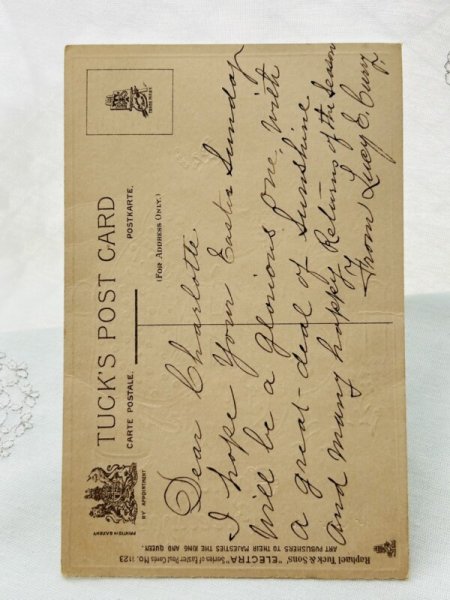 TUCK'S POST CARD
CARTE POSTALE. POSTKARTE.
(FOR ADDRESS ONLY.)
BY APPOINTMENT
PRINTED IN SAXONY
Dear Charlotte
I hope Your Easter Sunday
will be a glorious one, with
a great deal of Sunshine
And many happy Returns of the Season
From Lucy E.
Raphael Tuck & Sons' "ELECTRA" Series of Easter Post Cards No. 1123
ART PUBLISHERS TO THEIR MAJESTIES THE KING AND QUEEN.